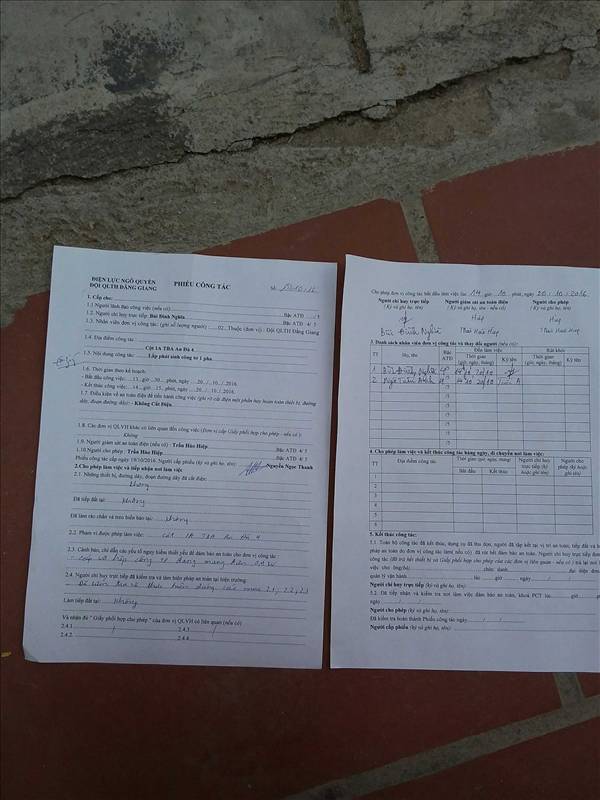 ĐIỆN LỰC NGÔ QUYỀN
ĐỘI QLTH ĐẰNG GIANG
PHIẾU CÔNG TÁC
Số:
1. Cấp cho:
1.1 Người lãnh đạo công việc (nếu có) Bậc ATĐ
1.2. Người chỉ huy trực tiếp: Bùi Đình Nghĩa Bậc ATĐ 4/ 5
1.3. Nhân viên đơn vị công tác: (ghi số lượng người) 02 , Thuộc (đơn vị) : Đội QLTH Đằng Giang
1.4. Địa điểm công tác : Cột 1A TBA An Đà 4
1.5. Nội dung công tác: Lắp phát sinh công tơ 1 pha.
1.6. Thời gian theo kế hoạch:
- Bắt đầu công việc: 13 giờ 30 phút, ngày 20 / 10 / 2016.
- Kết thúc công việc: 14 giờ 15 phút, ngày 20 / 10 / 2016.
1.7. Điều kiện về an toàn điện để tiến hành công việc (ghi rõ cắt điện một phần hay hoàn toàn thiết bị, đường dây, đoạn đường dây): - Không Cắt Điện.
1.8. Các đơn vị QLVH khác có liên quan đến công việc (Đơn vị cấp Giấy phối hợp cho phép - nếu có ):
Không
1.9. Người giám sát an toàn điện (nếu có) : Trần Hào Hiệp Bậc ATĐ 4/ 5
1.10.Người cho phép : Trần Hào Hiệp Bậc ATĐ 4/ 5
Phiếu công tác cấp ngày 19/10/2016. Người cấp phiếu (ký và ghi họ, tên): Nguyễn Ngọc Thanh
2.Cho phép làm việc và tiếp nhận nơi làm việc
2.1. Những thiết bị, đường dây, đoạn đường dây đã cắt điện:
Không
Đã tiếp đất tại: Không
Đã làm rào chắn và treo biển báo tại: Không
2.2. Phạm vi được phép làm việc: Cột 1A TBA An Đà 4
2.3. Cảnh báo, chỉ dẫn các yếu tố nguy hiểm thiết yếu để đảm bảo an toàn cho đơn vị công tác :
đang mang điện 0,4 KV
2.4. Người chỉ huy trực tiếp đã kiểm tra và làm biện pháp an toàn tại hiện trường:
Đã kiểm tra và thực hiện đúng các mục 2.1, 2.2, 2.3
Làm tiếp đất tại: Không
Và nhận đủ " Giấy phối hợp cho phép " của đơn vị QLVH có liên quan (nếu có)
2.4.1 2.4.3
2.4.2 2.4.4
Cho phép đơn vị công tác bắt đầu làm việc lúc 14 giờ 10 phút, ngày 20 / 10 / 2016
Người chỉ huy trực tiếp Người giám sát an toàn điện Người cho phép
(Ký và ghi họ, tên) (Ký và ghi họ, tên - nếu có) (Ký và ghi họ, tên)
Bùi Đình Nghĩa
3. Danh sách nhân viên đơn vị công tác và thay đổi người (nếu có):
TT Họ, tên Bậc ATĐ Đến làm việc Rút khỏi
Thời gian (giờ, ngày, tháng) Ký tên Thời gian (giờ, ngày, tháng) Ký tên
1 Bùi Đình Nghĩa
2
4. Cho phép làm việc và kết thúc công tác hàng ngày, di chuyển nơi làm việc:
TT Địa điểm công tác Thời gian (giờ, ngày, tháng) Người chỉ huy trực tiếp (ký hoặc ghi tên) Người cho phép (ký hoặc ghi tên)
Bắt đầu Kết thúc
1
2
3
4
5
6
5. Kết thúc công tác:
5.1. Toàn bộ công tác đã kết thúc, dụng cụ đã thu dọn, người đã tập kết tại vị trí an toàn, tiếp đất và
pháp an toàn do đơn vị công tác làm( nếu có) đã rút hết đảm bảo an toàn. Người chỉ huy trực tiếp
công tác
việc cho ông(bà) chức danh đại diện đơn
quản lý vận hành lúc giờ ngày
Người chỉ huy trực tiếp (ký và ghi họ, tên)
5.2. Đã tiếp nhận và kiểm tra nơi làm việc đảm bảo an toàn, khoá PCT lúc giờ
ngày
Người cho phép (ký và ghi họ, tên)
Đã kiểm tra hoàn thành Phiếu công tác ngày / /
Người cấp phiếu (ký và ghi họ, tên)